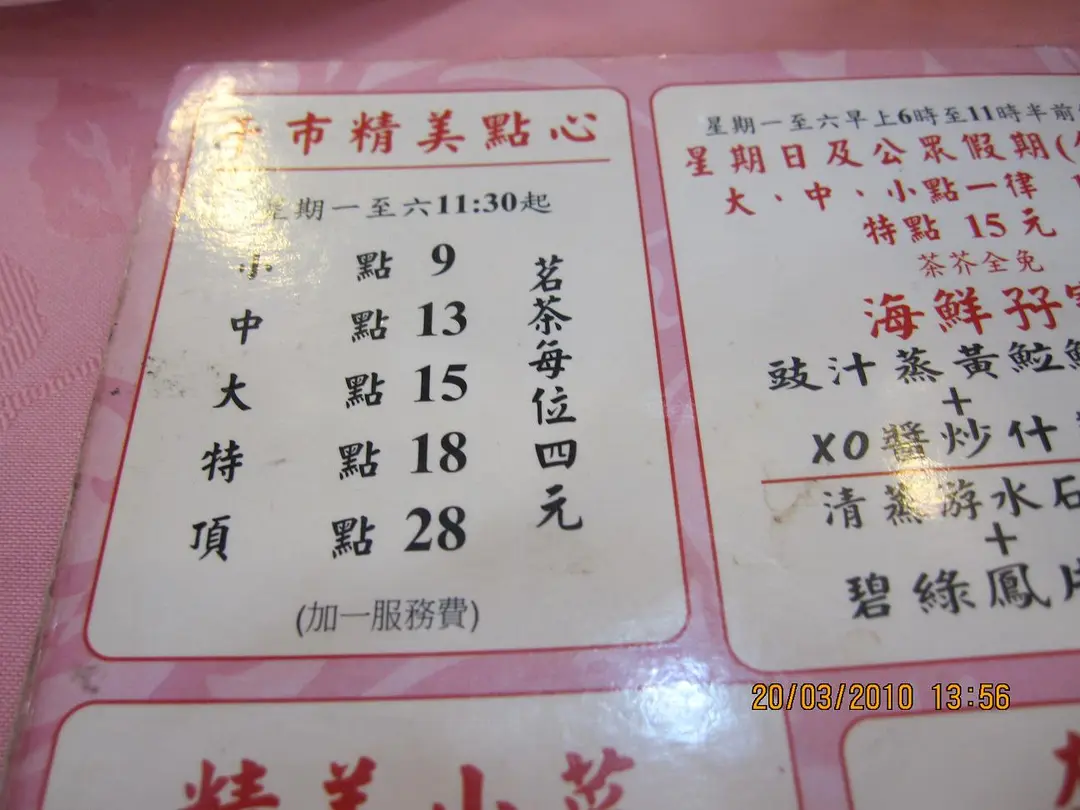 市精美點心
星期一至六11:30起
小點 9
中點 13
大點 15
特點 18
頂點 28
茗茶每位四元
(加一服務費)
星期一至六早上6時至11時半前
星期日及公眾假期(
大、中、小點一律
特點 15 元
茶芥全免
海鮮孖
豉汁蒸黃鱲
+
XO醬炒什
清蒸游水石
+
碧綠鳳片
精美小菜
20/03/2010 13:56